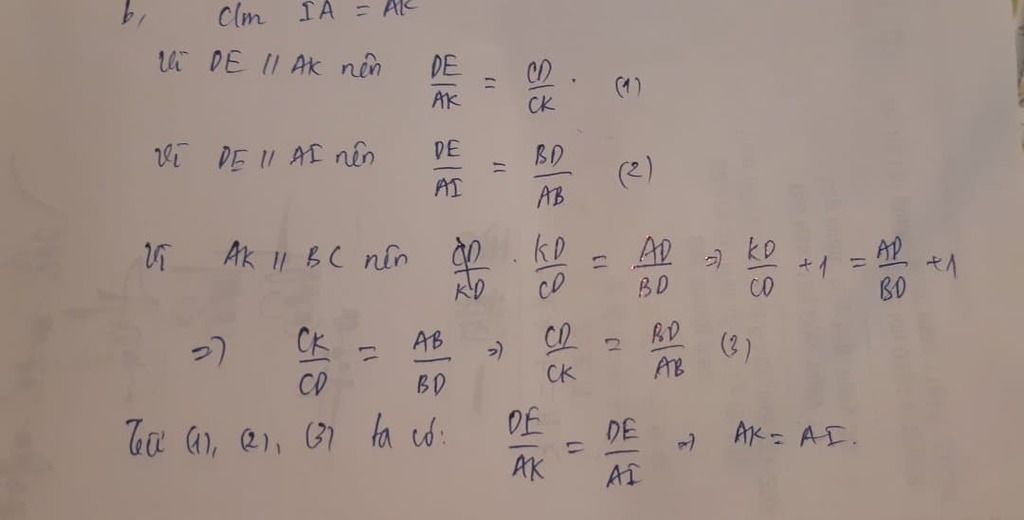 b, C/m IA = AK
Vì DE // AK nên DE/AK = CD/CK. (1)
Vì DE // AI nên DE/AI = BD/AB (2)
Vì AK // BC nên KD/CD = AD/BD => KD/CD + 1 = AD/BD + 1
=> CK/CD = AB/BD => CD/CK = BD/AB (3)
Từ (1), (2), (3) ta có: DE/AK = DE/AI => AK = AI.